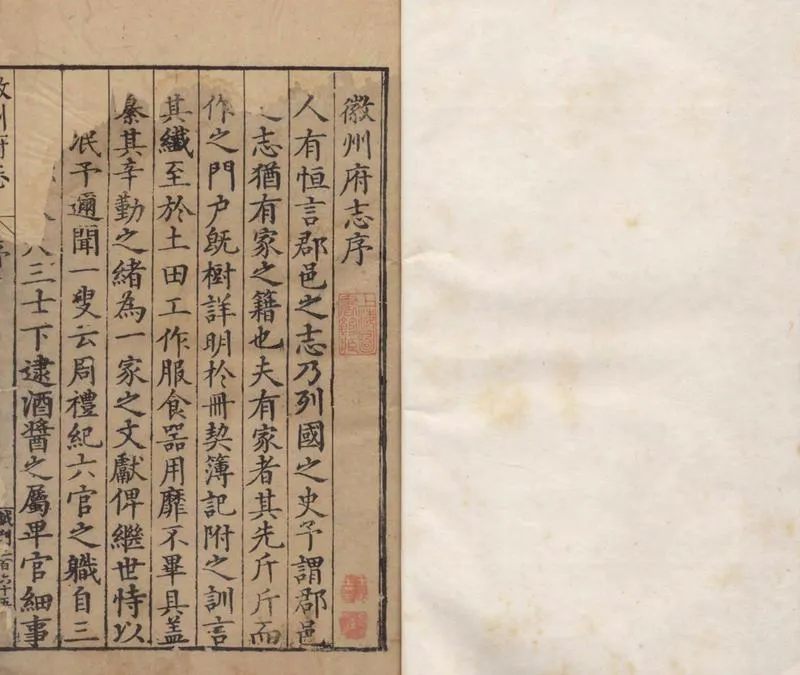 徽州府志序
人有恒言郡邑之志乃列國之史予謂郡邑
之志猶有家之籍也夫有家者其先斤斤而
作之門户旣樹詳明於冊契簿記附之訓言
其纎至於土田工作服食器用靡不畢具盖
絫其辛勤之緒為一家之文獻俾繼世恃以
泯予邇聞一叟云周禮紀六官之軄自三
人三士下逮酒醬之屬畢官細事
州府志
上海圖書館藏